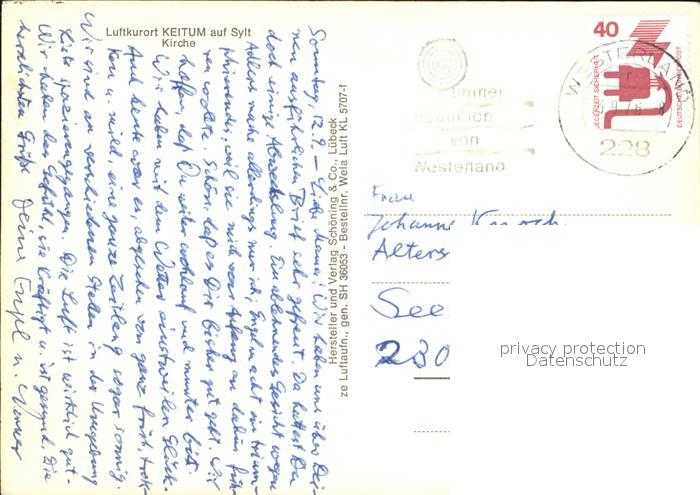 Luftkurort KEITUM auf Sylt
Kirche
Sonntag, 12.9. – Liebe Mama! Wir haben uns über Dei-
nen ausführlichen Brief sehr gefreut. Da hattest Du
doch einige Abwechslung. Ein ablehnendes Gesicht wegen
Adlers machte allerdings nur die
weil sie mich von Anfang an dahin
wollte. Schön, daß es Dir bisher gut geht. Wir
hoffen, daß Du weiter wohlauf und munter bist.
Wir haben mit dem Wetter einstweilen Glück.
Auch heute war es, abgesehen von ganz früh, trok-
ken u. mild, eine ganze Zeitlang sogar sonnig.
Wir sind an verschiedenen Stellen in der Umgebung
Kilos spazierengegangen. Die Luft ist wirklich gut.
Wir haben das Gefühl, sie kräftigt u. ist gesund. Die
herzlichsten Grüße Deine u. Werner
Hersteller und Verlag Schöning & Co., Lübeck
ze Luftaufn., gen. SH 36053 - Bestellnr. Wella Luft KL 5707-f
immer
träum' ich
von
Westerland
WESTERLAND
9.76-8
228
40
JEDERZEIT SICHERHEIT
DEUTSCHE BUNDESPOST
Frau
Johanne
Alters
See
230
privacy protection
Datenschutz